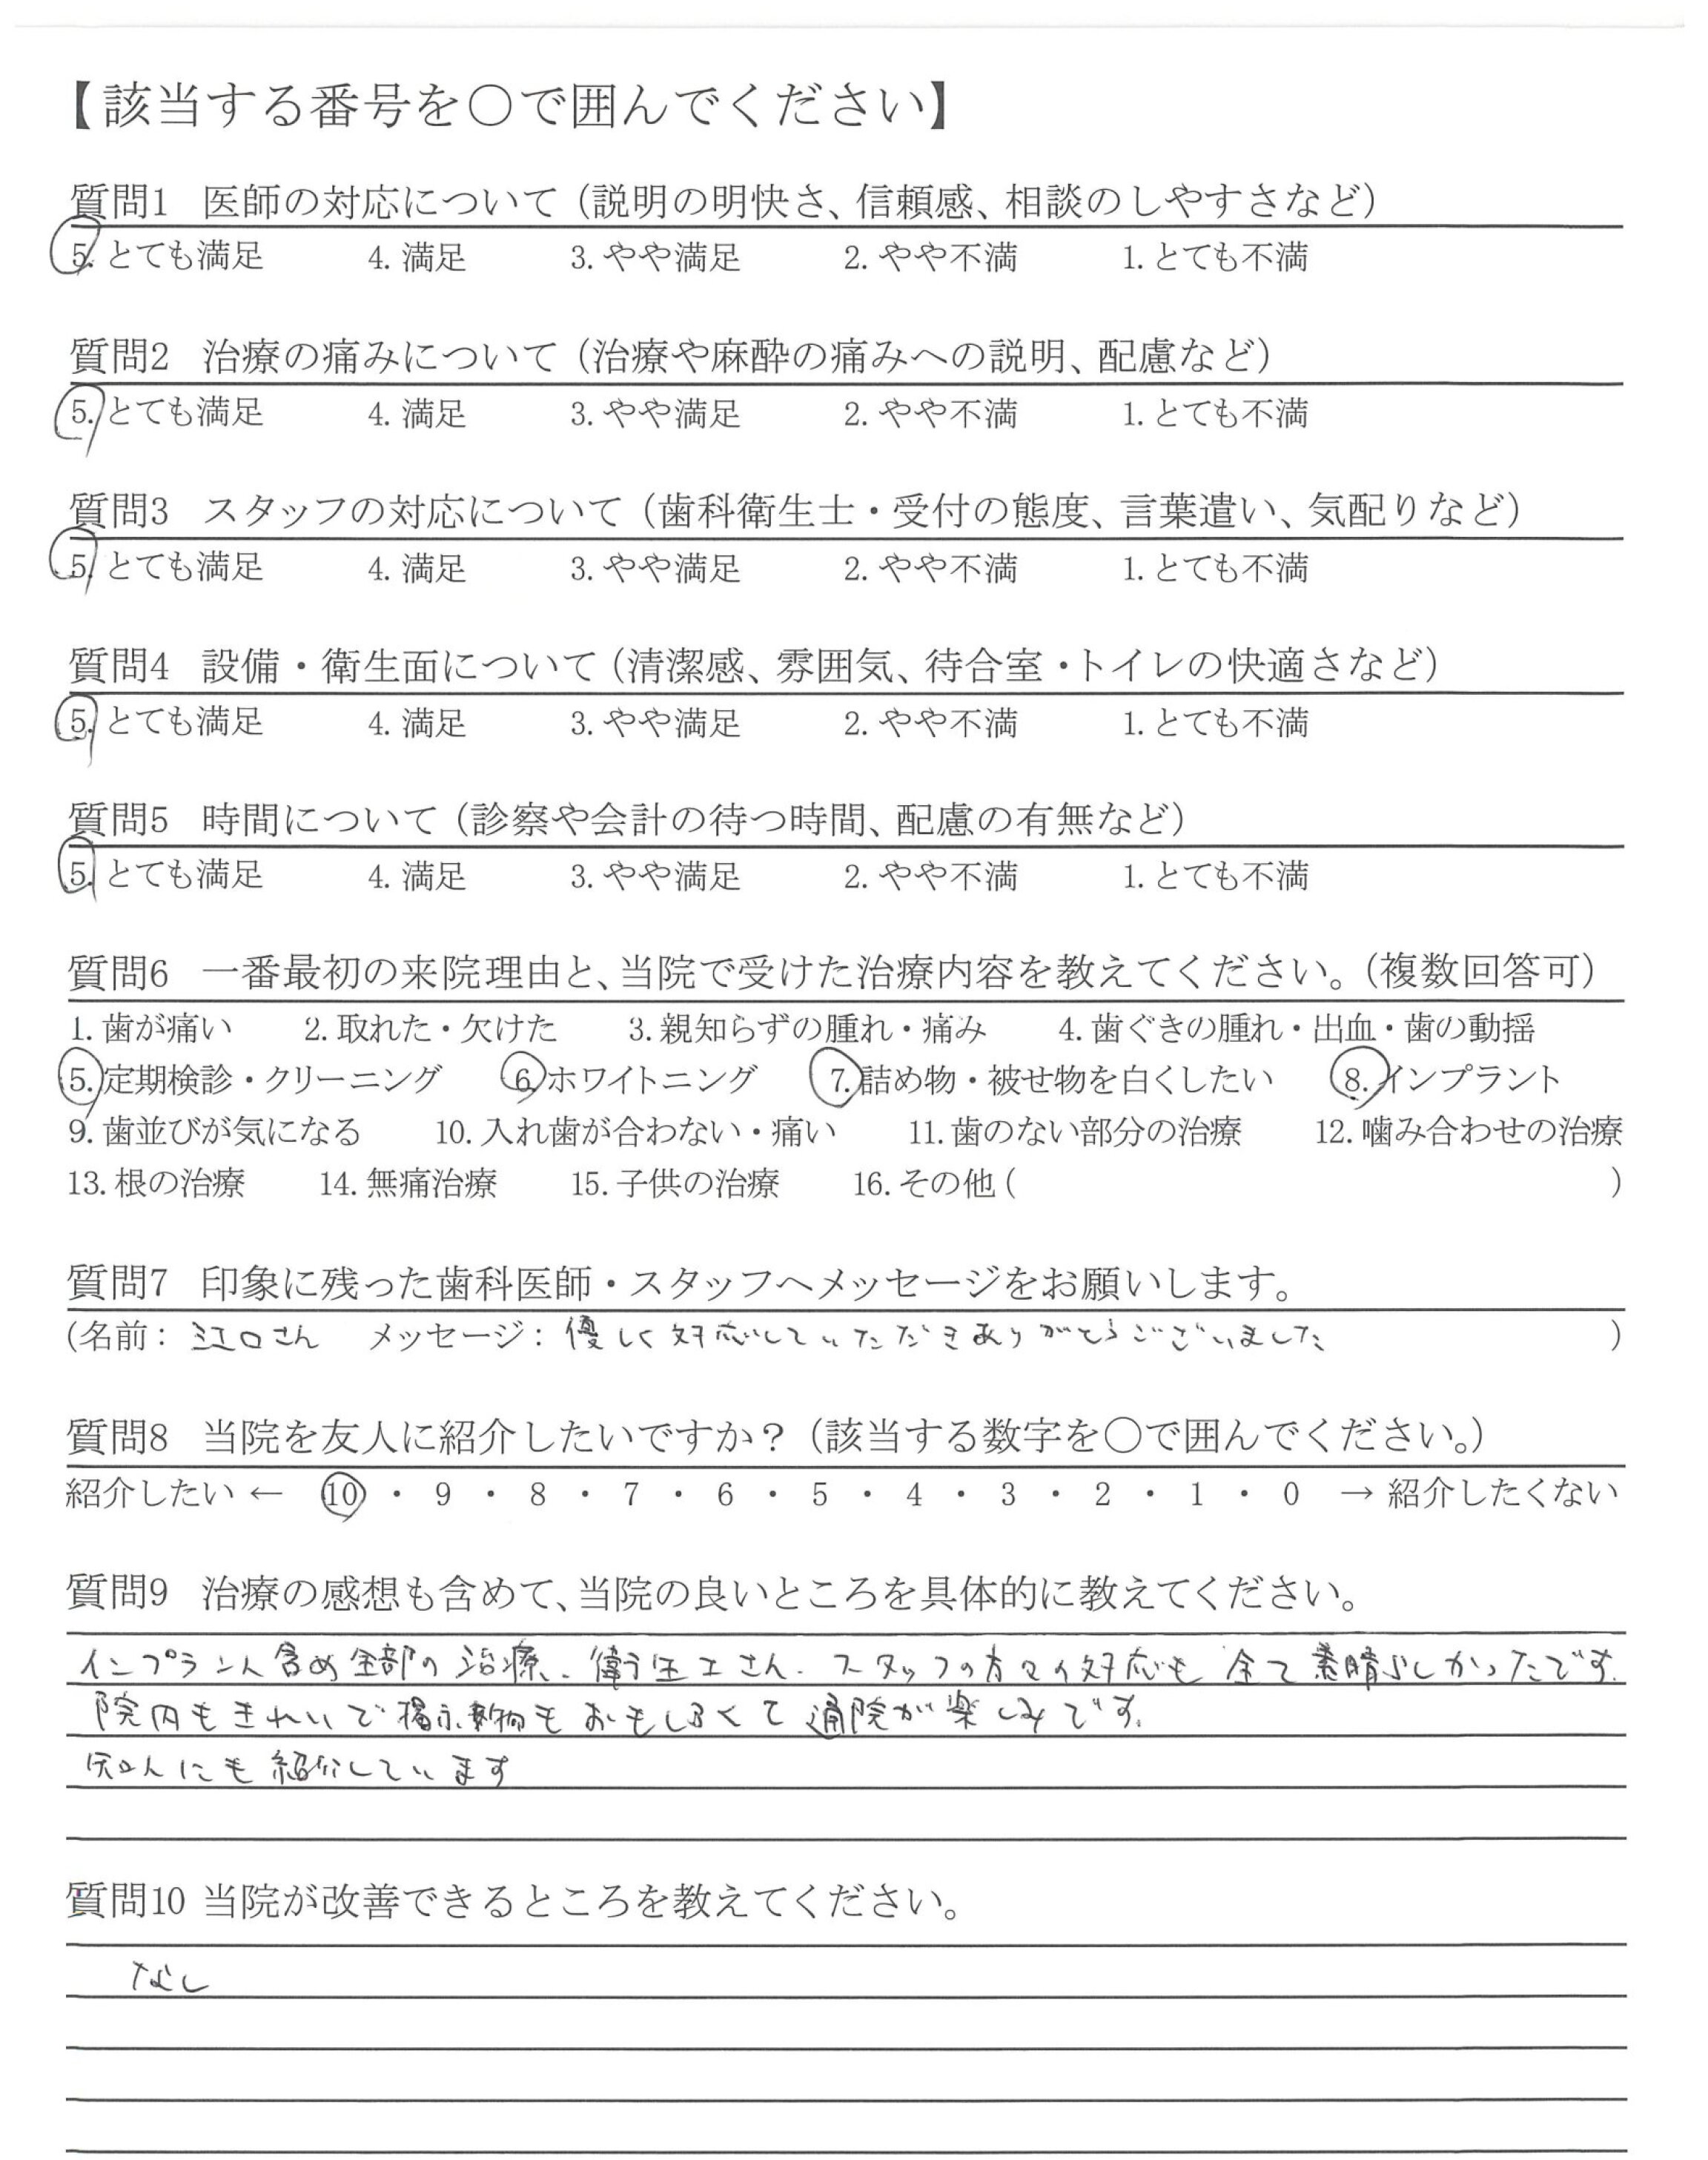 【該当する番号を〇で囲んでください】
質問1 医師の対応について（説明の明快さ、信頼感、相談のしやすさなど）
5. とても満足 4. 満足 3. やや満足 2. やや不満 1. とても不満
質問2 治療の痛みについて（治療や麻酔の痛みへの説明、配慮など）
5. とても満足 4. 満足 3. やや満足 2. やや不満 1. とても不満
質問3 スタッフの対応について（歯科衛生士・受付の態度、言葉遣い、気配りなど）
5. とても満足 4. 満足 3. やや満足 2. やや不満 1. とても不満
質問4 設備・衛生面について（清潔感、雰囲気、待合室・トイレの快適さなど）
5. とても満足 4. 満足 3. やや満足 2. やや不満 1. とても不満
質問5 時間について（診察や会計の待つ時間、配慮の有無など）
5. とても満足 4. 満足 3. やや満足 2. やや不満 1. とても不満
質問6 一番最初の来院理由と、当院で受けた治療内容を教えてください。（複数回答可）
1. 歯が痛い 2. 取れた・欠けた 3. 親知らずの腫れ・痛み 4. 歯ぐきの腫れ・出血・歯の動揺
5. 定期検診・クリーニング 6. ホワイトニング 7. 詰め物・被せ物を白くしたい 8. インプラント
9. 歯並びが気になる 10. 入れ歯が合わない・痛い 11. 歯のない部分の治療 12. 噛み合わせの治療
13. 根の治療 14. 無痛治療 15. 子供の治療 16. その他（ ）
質問7 印象に残った歯科医師・スタッフへメッセージをお願いします。
（名前：江口さん メッセージ：優しく対応していただきありがとうございました ）
質問8 当院を友人に紹介したいですか？（該当する数字を〇で囲んでください。）
紹介したい ← 10 ・ 9 ・ 8 ・ 7 ・ 6 ・ 5 ・ 4 ・ 3 ・ 2 ・ 1 ・ 0 → 紹介したくない
質問9 治療の感想も含めて、当院の良いところを具体的に教えてください。
インプラント含め全部の治療、衛生士さん、スタッフの方々の対応も全て素晴らしかったです。
院内もきれいで掲示物もおもしろくて通院が楽しみです。
知人にも紹介しています
質問10 当院が改善できるところを教えてください。
なし